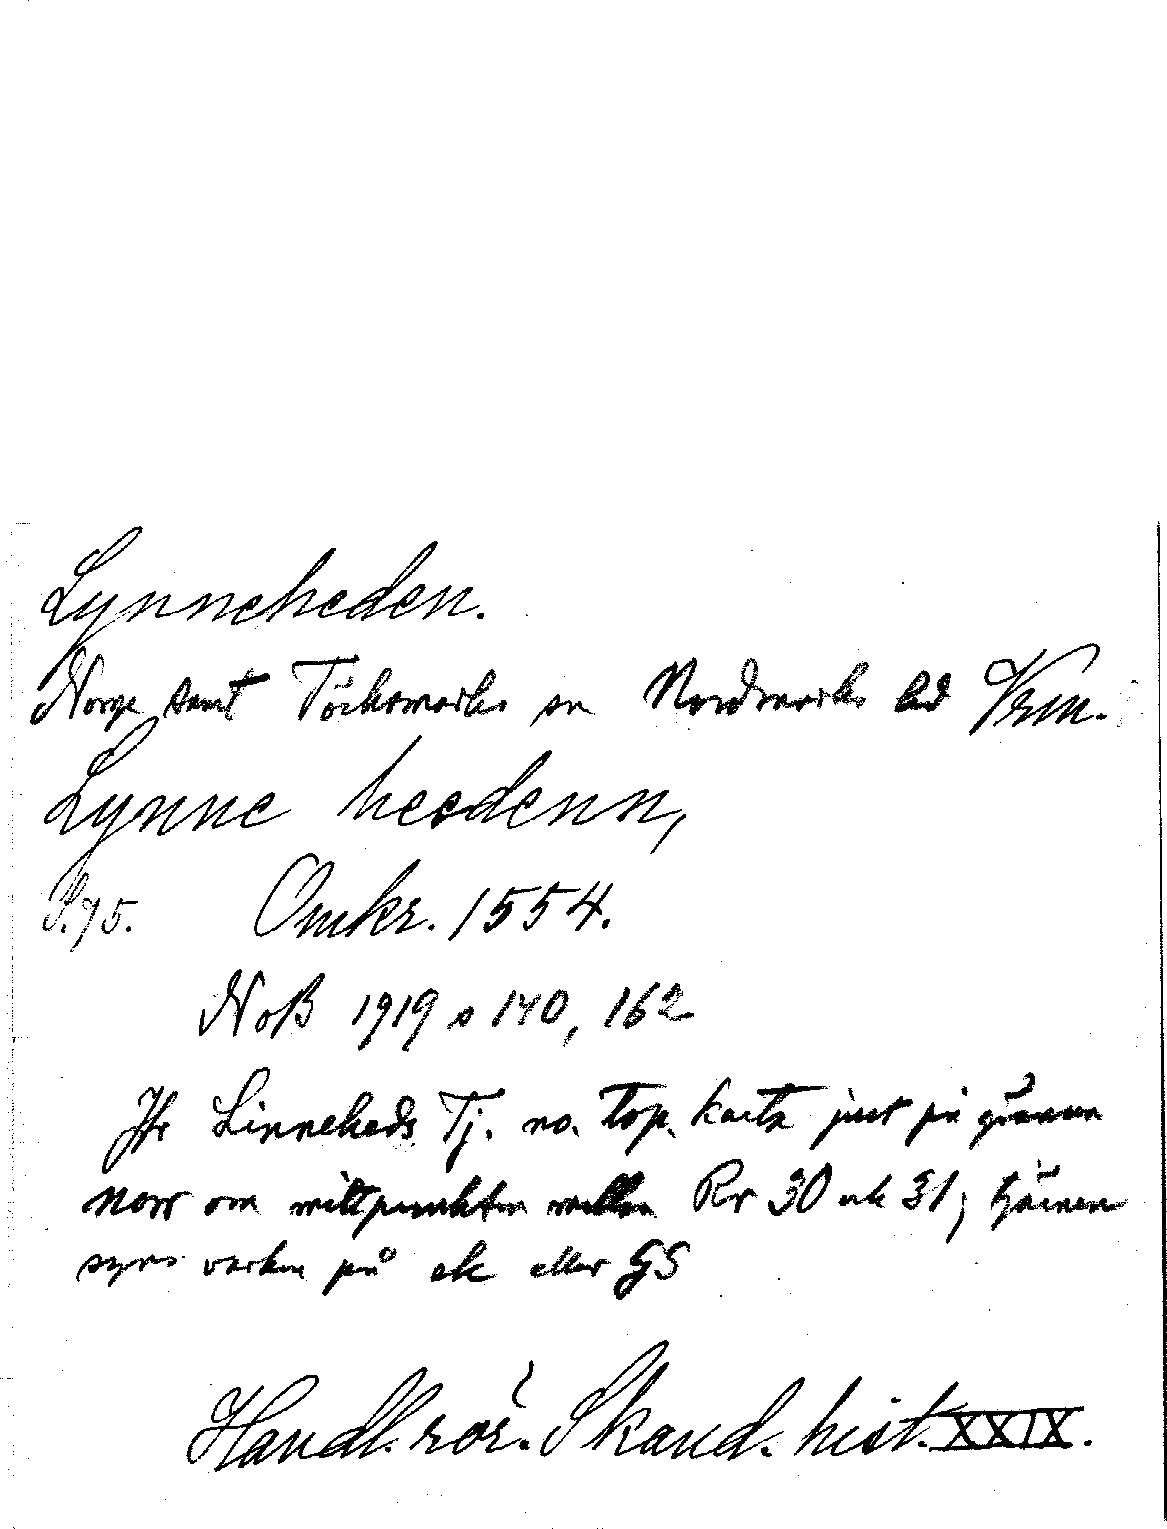 Lynneheden.
Norge samt Töcksmarks sn Nordmarks hd Vrm.
Lynne heedenn,
S. 75. Omkr. 1554.
NoB 1919 s 140, 162
Jfr Linneheds Tj. no. top. karta just på gränsen
norr om mittpunkten mellan Rr 30 ok 31; tjärnen
syns varken på ek eller GS
Handl. rör. Skand. hist. XXIX.